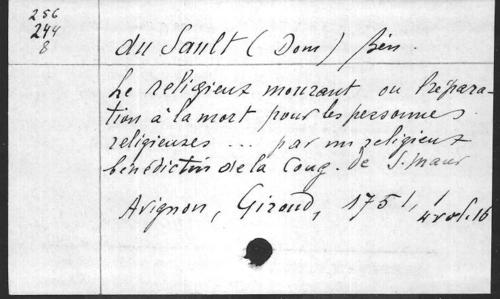 256
244
8
du Sault (Dom) Bén.
Le religieux mourant ou Prépara-
tion à la mort pour les personnes
religieuses ... par un religieux
bénédictin de la Cong. de S. Maur
Avignon, Giroud, 1751, 1
4 vol. 16